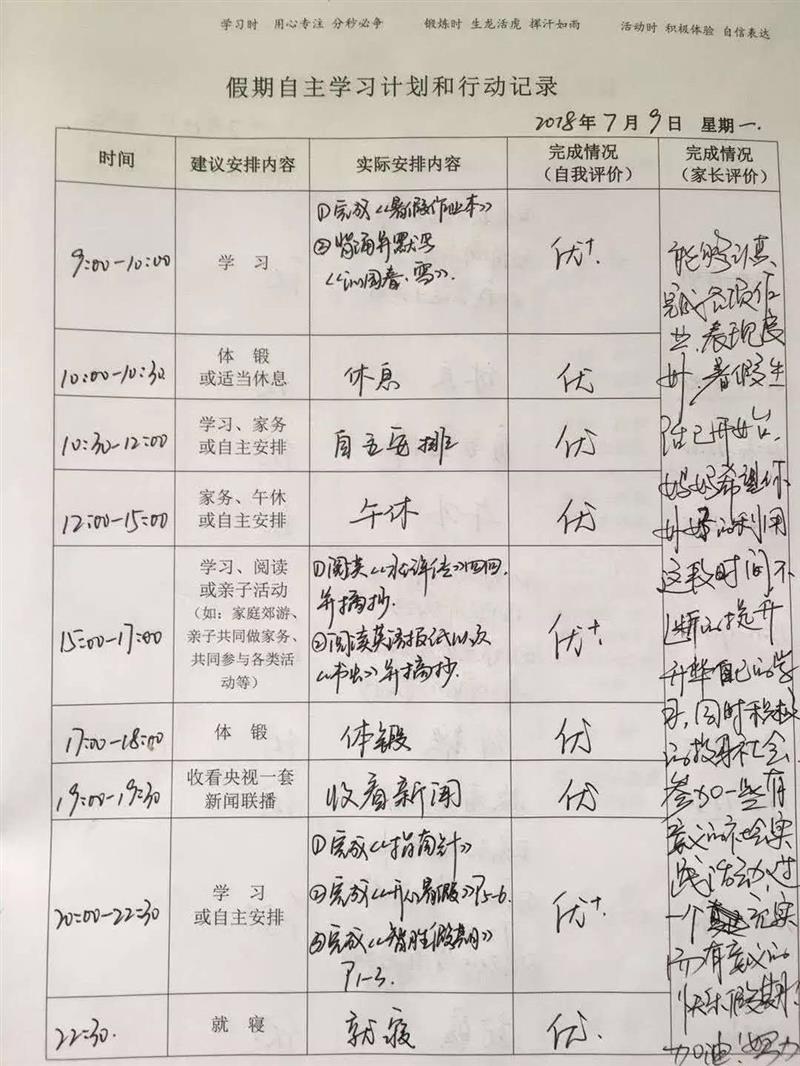 学习时 用心专注 分秒必争 锻炼时 生龙活虎 挥汗如雨 活动时 积极体验 自信表达
假期自主学习计划和行动记录
2018年7月9日 星期一.
时间 建议安排内容 实际安排内容 完成情况（自我评价） 完成情况（家长评价）
9:00-10:00
学 习
①完成《暑假作业本》
②背诵并默写
《沁园春·雪》.
优+.
10:00-10:30
体 锻
或适当休息
休息
优
10:30-12:00
学习、家务
或自主安排
自主安排
优
12:00-15:00
家务、午休
或自主安排
午休
优
15:00-17:00
学习、阅读
或亲子活动
（如：家庭郊游、
亲子共同做家务、
共同参与各类活
动等）
①阅读《水浒传》四回.
并摘抄.
②阅读英语报纸以次
并摘抄.
优+.
17:00-18:00
体 锻
体锻
优
19:00-19:30
收看央视一套
新闻联播
收看新闻
优
20:00-22:30
学 习
或自主安排
①完成《指南针》
②完成《开心暑假》P5-6.
③完成《智胜假期》
P1-3.
优+.
22:30.
就 寝
就寝
优.
能够认真
完成各项作
业,表现良
好,暑假生
活已开始,
妈妈希望你
好好的利用
这段时间不
断的提升
升华自己的学
习,同时积极
的投身社会
参加一些有
意义的社会实
践活动,过
一个充实
而有意义的
快乐假期!
加油!努力